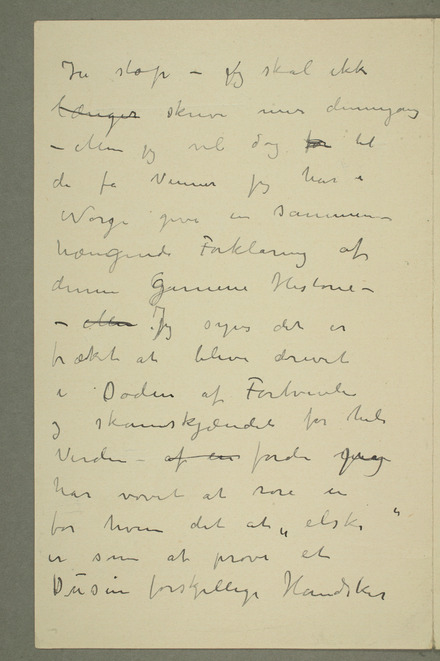 Ju stop – jeg skal ikke
længer skrive mer dennegang
– Men jeg vil dog for til
de få Venner jeg har i
Norge give en sammen-
hængende Forklaring af
denne Gemene Historie –
– Men Jeg synes det er
frækt at blive drevet
i Døden af Fortvivle
og skamskjændet for hele
Verden – af en fordi jeg
har vovet at røre en
for hvem det at „elske“
er som at prøve et
Dusin forskjellige Handsker